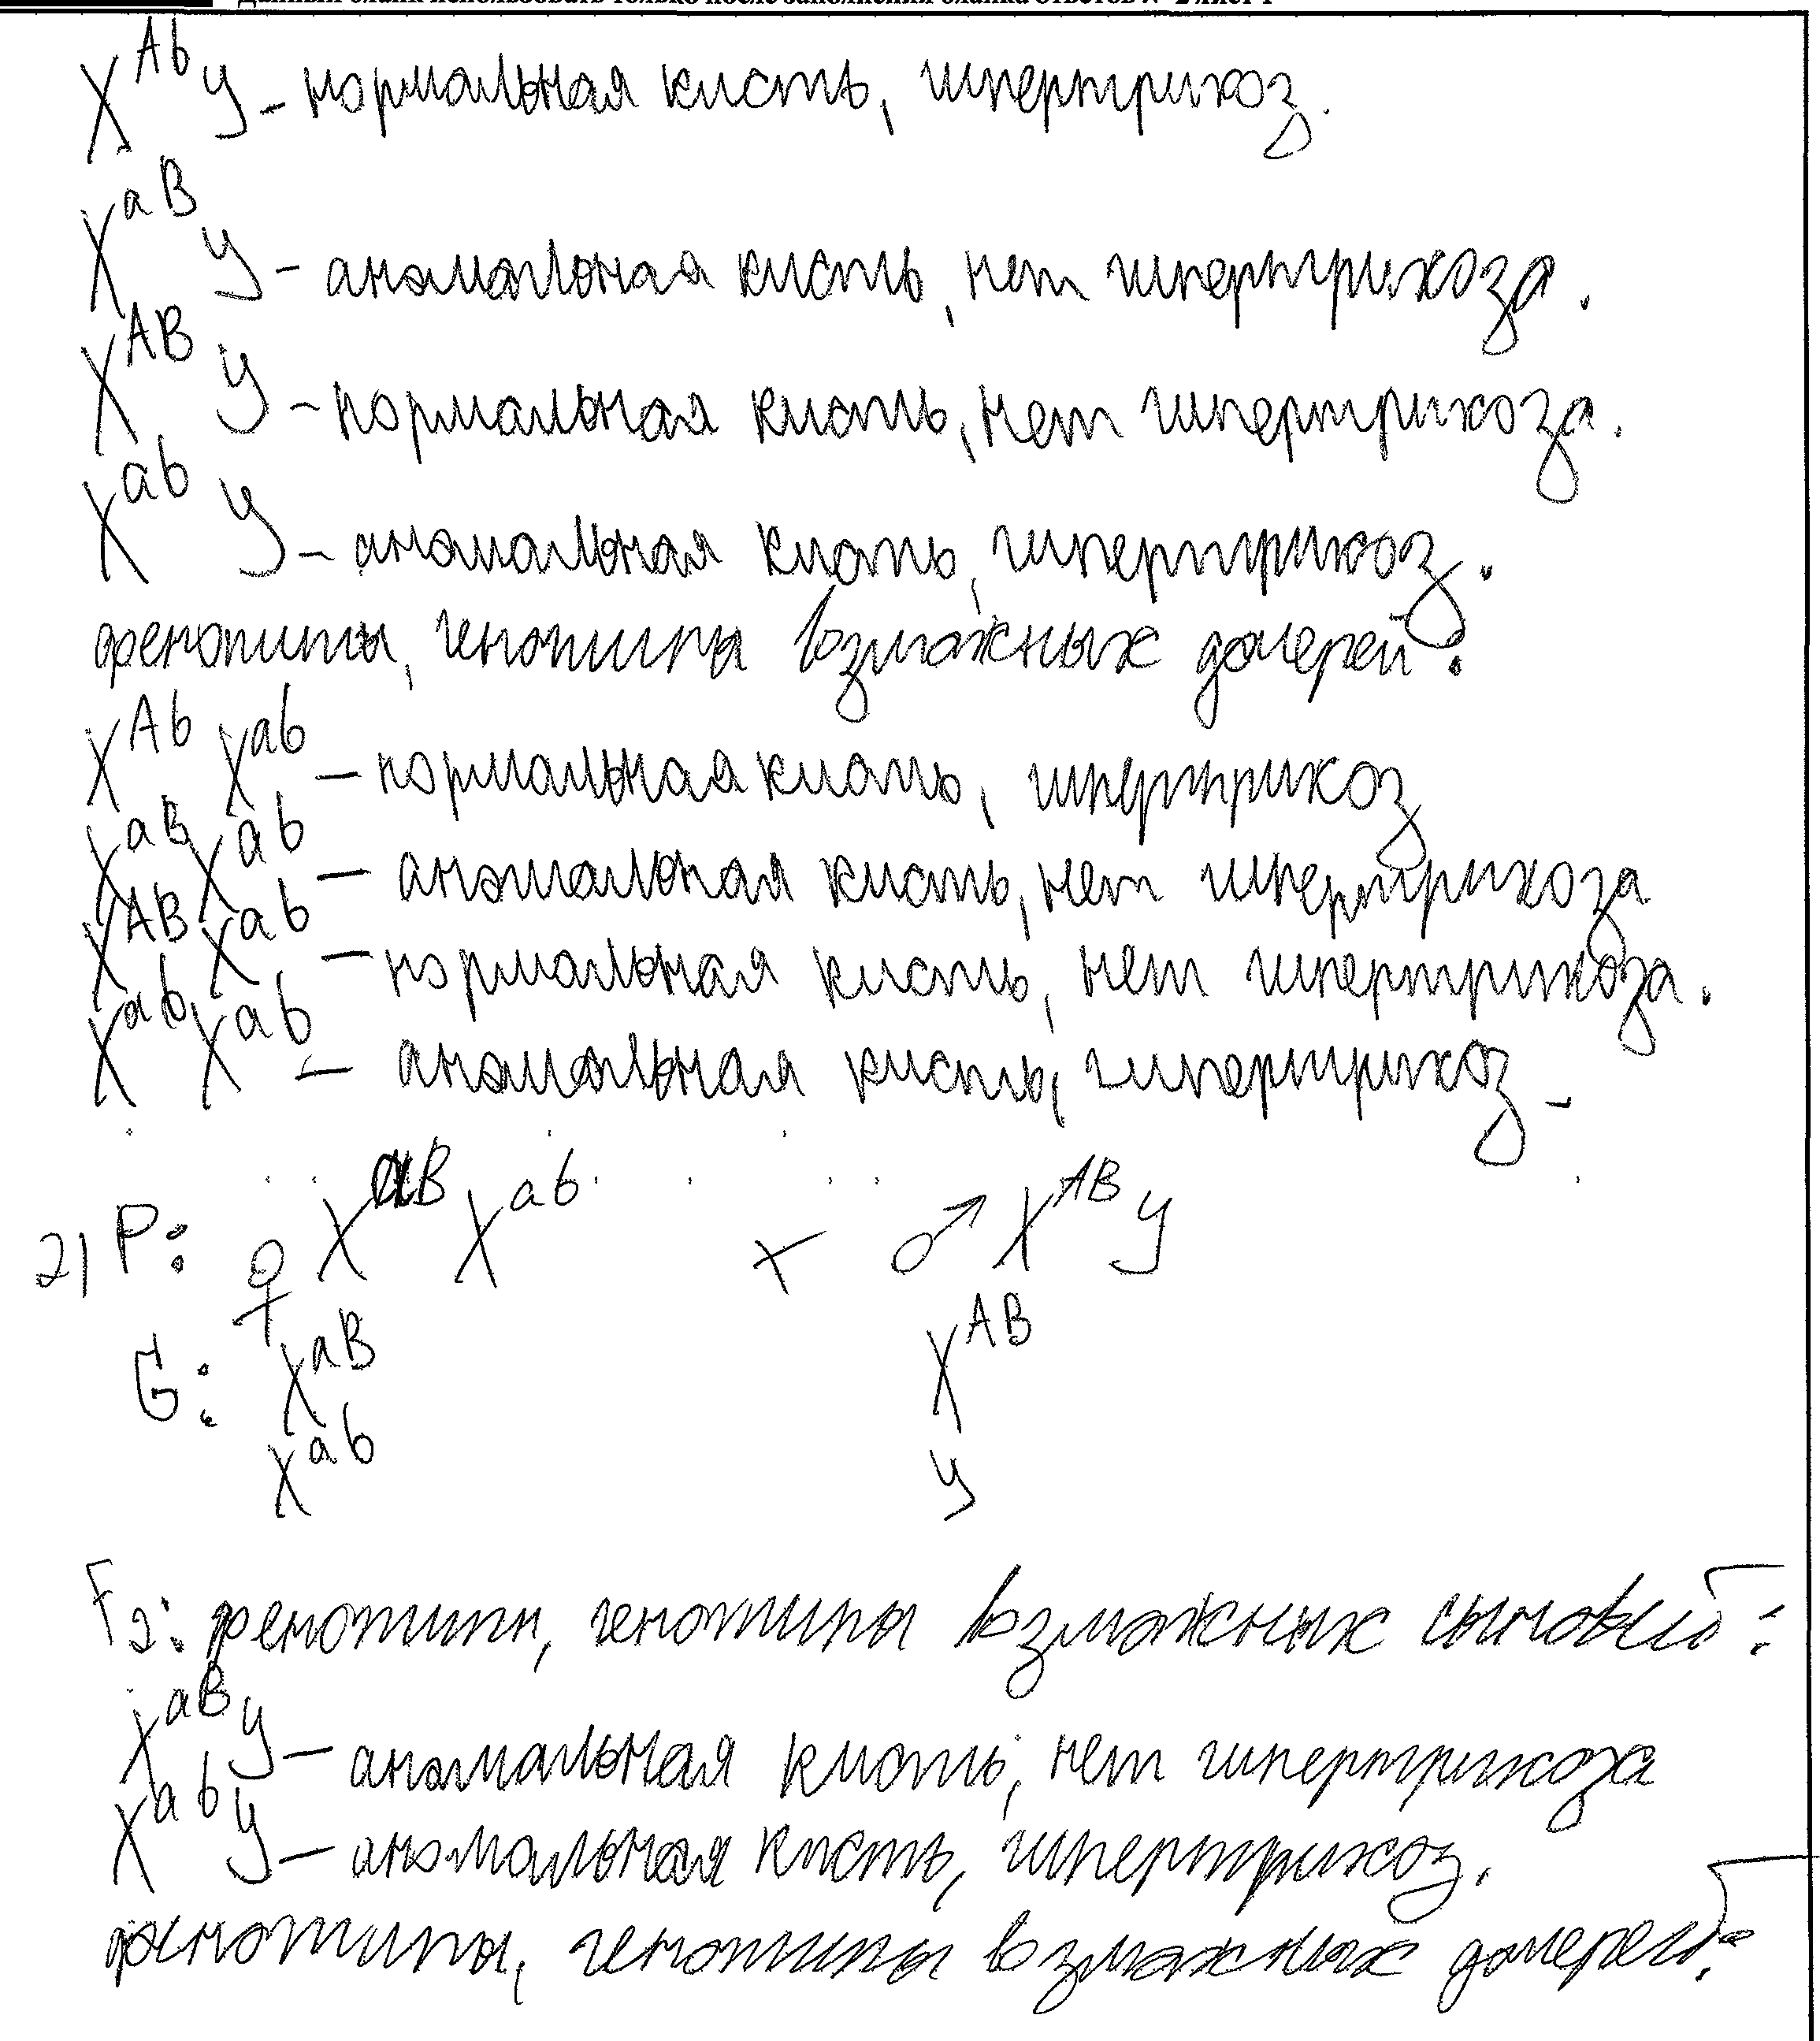 Данный бланк использовать только после заполнения бланка ответов № 2 лист 1
X^Ab У - нормальная кисть, гипертрихоз.
X^aB У - аномальная кисть, нет гипертрихоза.
X^AB У - нормальная кисть, нет гипертрихоза.
X^ab У - аномальная кисть, гипертрихоз.
фенотипы, генотипы взможных дочерей:
X^Ab X^ab - нормальная кисть, гипертрихоз
X^aB X^ab - аномальная кисть, нет гипертрихоза
X^AB X^ab - нормальная кисть, нет гипертрихоза.
X^ab X^ab - аномальная кисть, гипертрихоз -
2) P: ♀ X^aB X^ab × ♂ X^AB У
G: X^aB X^AB
X^ab У
F2: фенотипы, генотипы взможных сыновей:
X^aB У - аномальная кисть, нет гипертрихоза
X^ab У - аномальная кисть, гипертрихоз.
фенотипы, генотипы взможных дочерей: